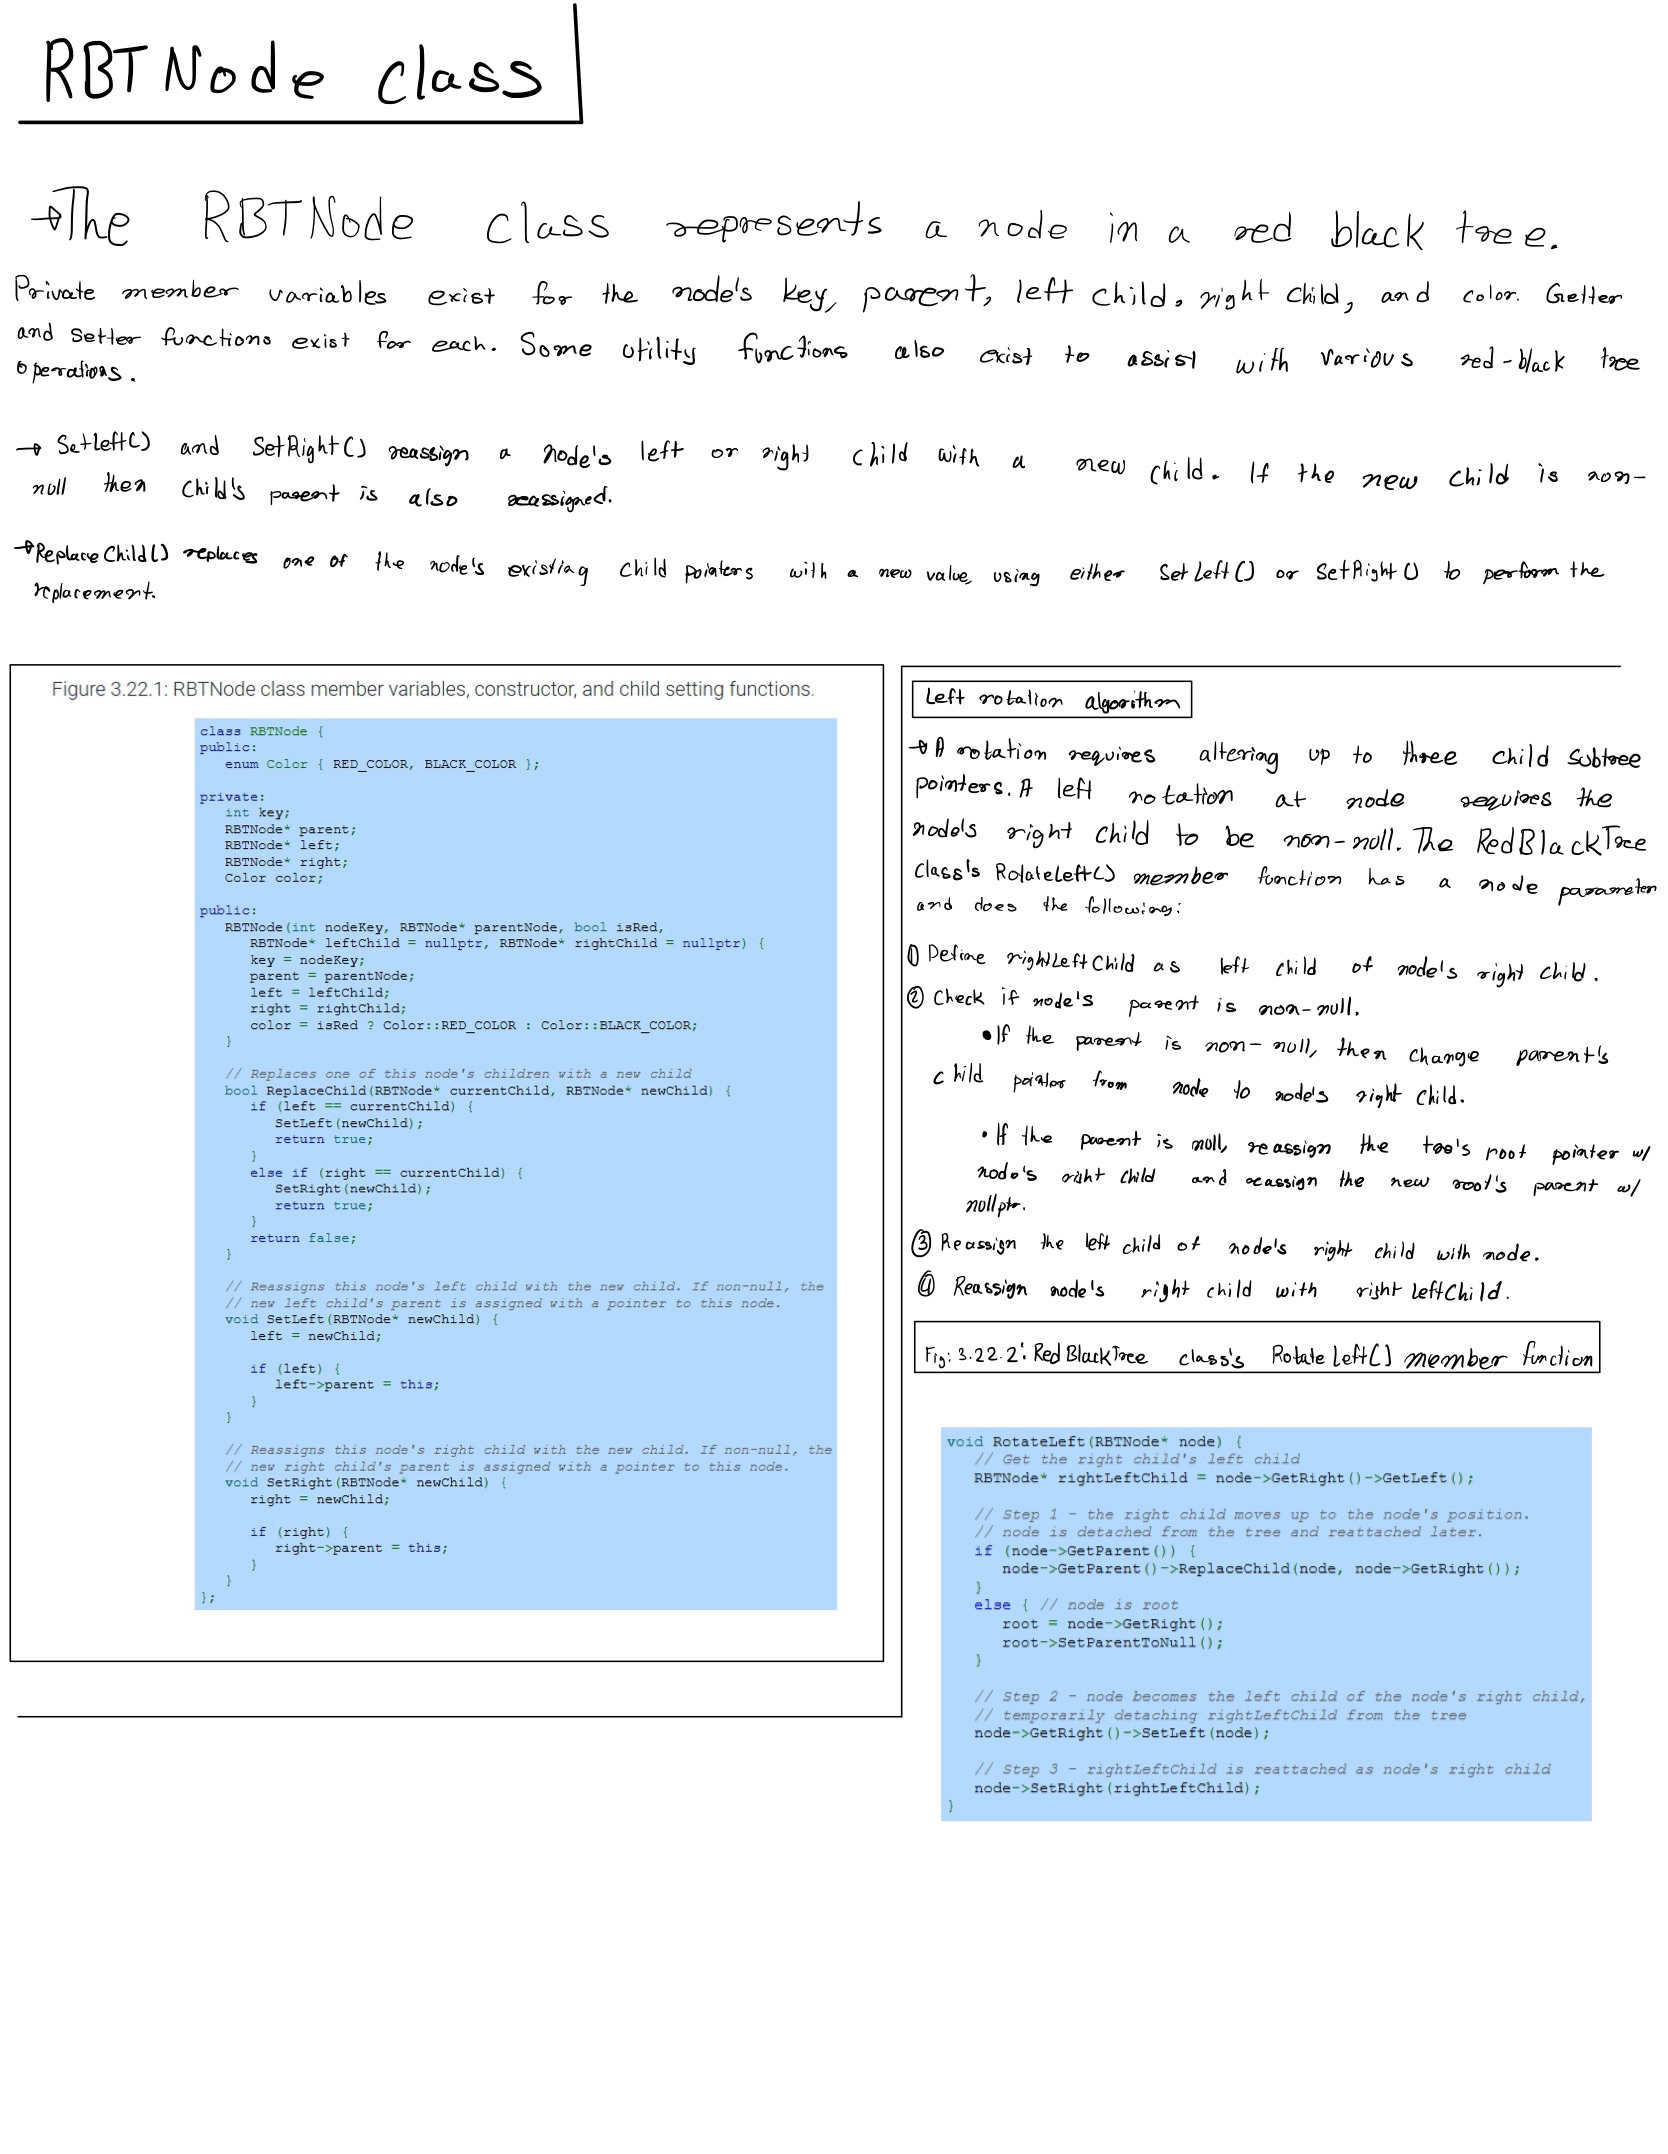 RBTNode class
→The RBTNode class represents a node in a red black tree.
Private member variables exist for the node's key, parent, left child, right child, and color. Getter
and setter functions exist for each. Some utility functions also exist to assist with various red-black tree
operations.
→ SetLeft() and SetRight() reassign a node's left or right child with a new child. If the new child is non-
null then child's parent is also reassigned.
→ReplaceChild() replaces one of the node's existing child pointers with a new value, using either SetLeft() or SetRight() to perform the
replacement.
Figure 3.22.1: RBTNode class member variables, constructor, and child setting functions.
class RBTNode {
public:
enum Color { RED_COLOR, BLACK_COLOR };
private:
int key;
RBTNode* parent;
RBTNode* left;
RBTNode* right;
Color color;
public:
RBTNode(int nodeKey, RBTNode* parentNode, bool isRed,
RBTNode* leftChild = nullptr, RBTNode* rightChild = nullptr) {
key = nodeKey;
parent = parentNode;
left = leftChild;
right = rightChild;
color = isRed ? Color::RED_COLOR : Color::BLACK_COLOR;
}
// Replaces one of this node's children with a new child
bool ReplaceChild(RBTNode* currentChild, RBTNode* newChild) {
if (left == currentChild) {
SetLeft(newChild);
return true;
}
else if (right == currentChild) {
SetRight(newChild);
return true;
}
return false;
}
// Reassigns this node's left child with the new child. If non-null, the
// new left child's parent is assigned with a pointer to this node.
void SetLeft(RBTNode* newChild) {
left = newChild;
if (left) {
left->parent = this;
}
}
// Reassigns this node's right child with the new child. If non-null, the
// new right child's parent is assigned with a pointer to this node.
void SetRight(RBTNode* newChild) {
right = newChild;
if (right) {
right->parent = this;
}
}
};
Left rotation algorithm
→A rotation requires altering up to three child subtree
pointers. A left rotation at node requires the
node's right child to be non-null. The RedBlackTree
class's RotateLeft() member function has a node parameter
and does the following:
① Define rightLeftChild as left child of node's right child.
② Check if node's parent is non-null.
•If the parent is non-null, then change parent's
child pointer from node to node's right child.
•If the parent is null, reassign the tree's root pointer w/
node's right child and reassign the new root's parent w/
nullptr.
③ Reassign the left child of node's right child with node.
④ Reassign node's right child with rightLeftChild.
Fig: 3.22.2: RedBlackTree class's RotateLeft() member function
void RotateLeft(RBTNode* node) {
// Get the right child's left child
RBTNode* rightLeftChild = node->GetRight()->GetLeft();
// Step 1 - the right child moves up to the node's position.
// node is detached from the tree and reattached later.
if (node->GetParent()) {
node->GetParent()->ReplaceChild(node, node->GetRight());
}
else { // node is root
root = node->GetRight();
root->SetParentToNull();
}
// Step 2 - node becomes the left child of the node's right child,
// temporarily detaching rightLeftChild from the tree
node->GetRight()->SetLeft(node);
// Step 3 - rightLeftChild is reattached as node's right child
node->SetRight(rightLeftChild);
}